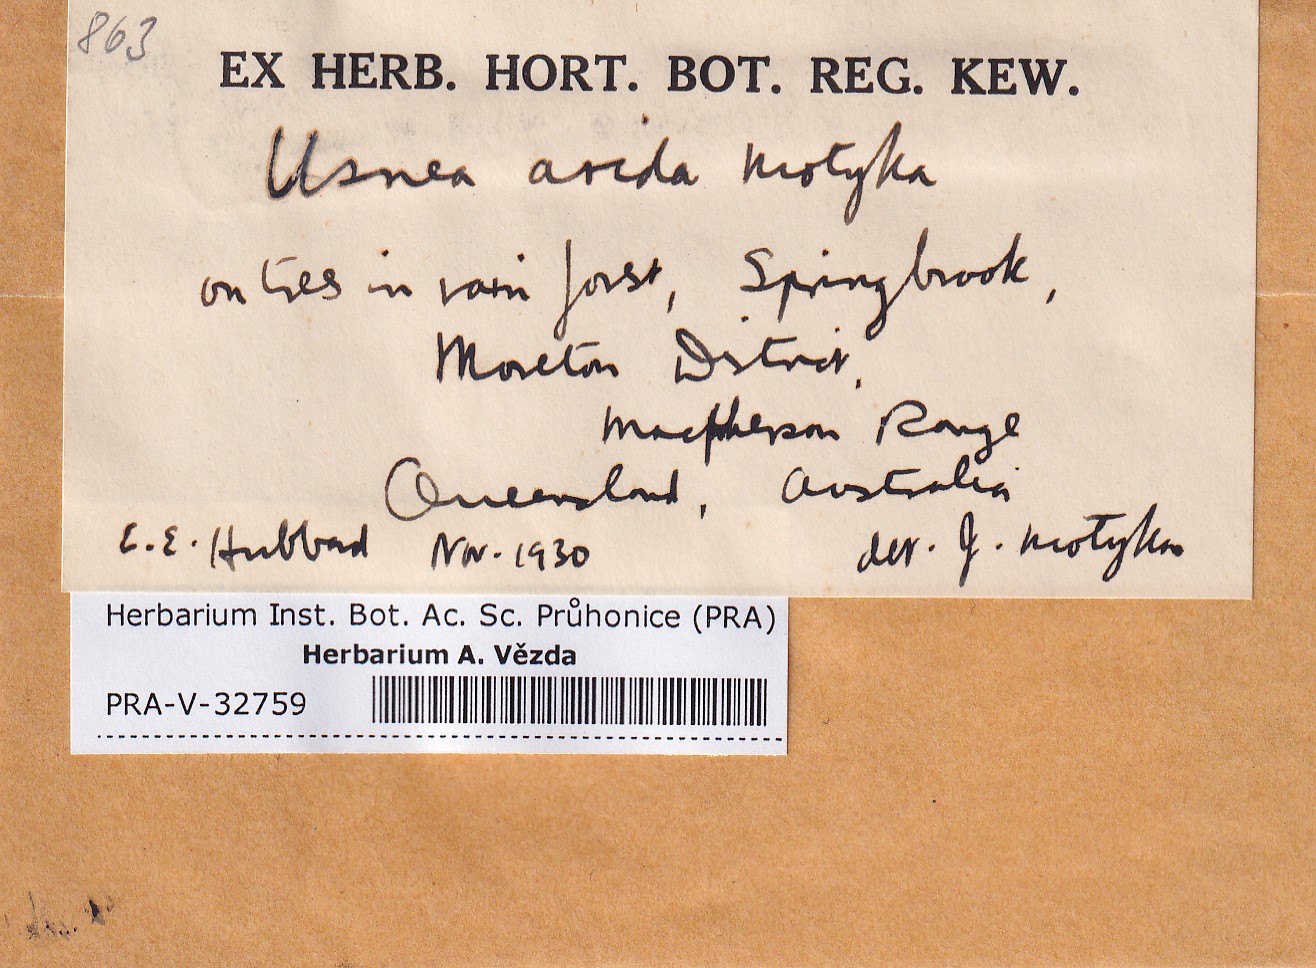 863
EX HERB. HORT. BOT. REG. KEW.
Usnea arida Motyka
on trees in rain forest, Springbrook,
Moreton District,
Macpherson Range
Queensland, Australia
C.E. Hubbard Nov. 1930 det. J. Motyka
Herbarium Inst. Bot. Ac. Sc. Průhonice (PRA)
Herbarium A. Vězda
PRA-V-32759